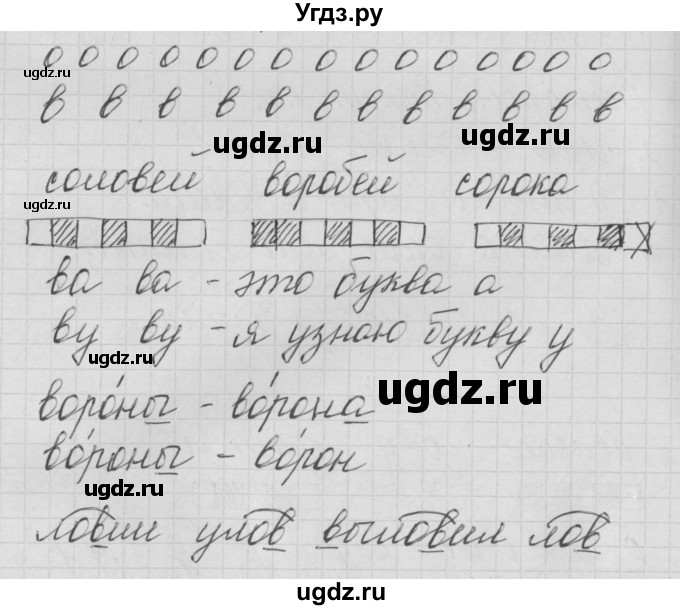 Угдз.ру
о о о о о о о о о о о о о о о о
ugdz.ru
в в в в в в в в в в в в
ugdz.ru ugdz.ru
соловей воробей сорока
ugdz.ru
ва ва - это буква а
ву ву - я узнаю букву у
ugdz.ru
ugdz.ru
воро́ны - во́рона
во́роны - во́рон
ugdz.ru
ловим улов выловил лов
ugdz.ru
ugdz.ru